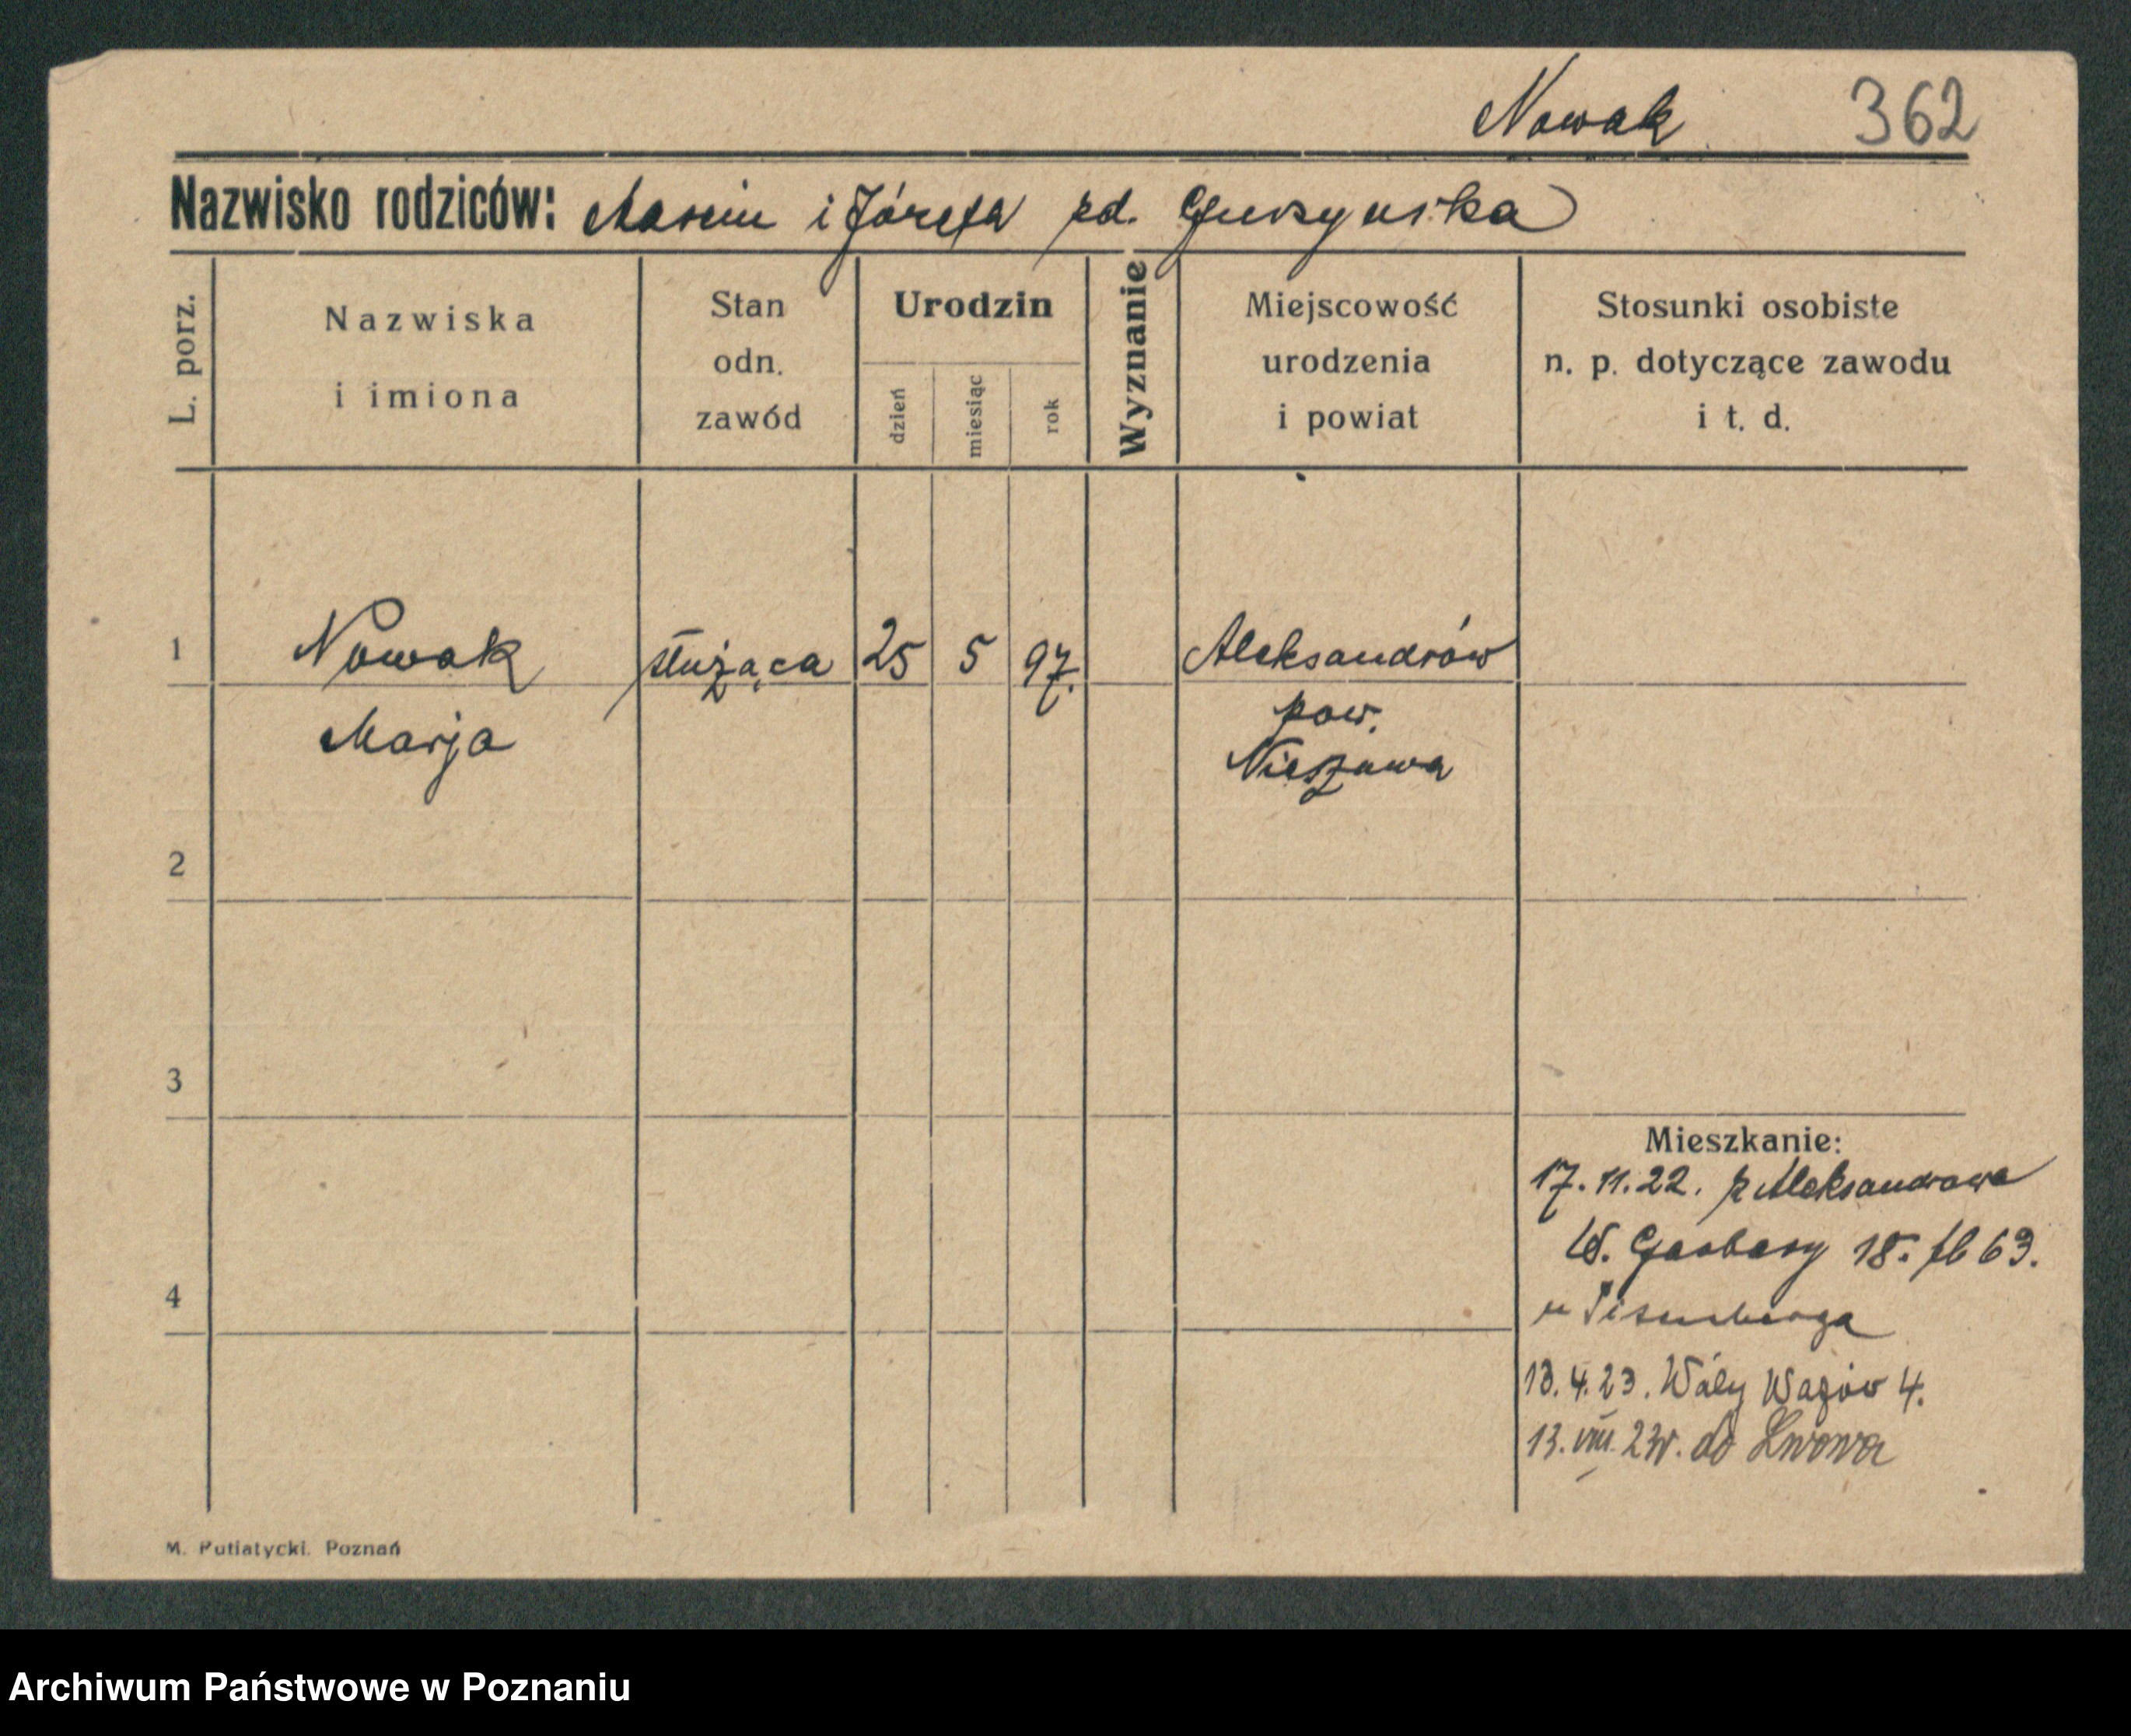 Nowak 362
Nazwisko rodziców: Marcin i Józefa zd.
L. porz.
Nazwiska
i imiona
Stan
odn.
zawód
Urodzin
dzień
miesiąc
rok
Wyznanie
Miejscowość
urodzenia
i powiat
Stosunki osobiste
n. p. dotyczące zawodu
i t. d.
1 Nowak służąca 25 5 97. Aleksandrów
Marja pow.
Nieszawa
2
3
Mieszkanie:
17.11.22. z Aleksandrowa
W. Garbary 18. 63.
4
u
13.4.23. Wały Wazów 4.
13.VIII.23r. do Lwowa
M. Putiatycki. Poznań
Archiwum Państwowe w Poznaniu